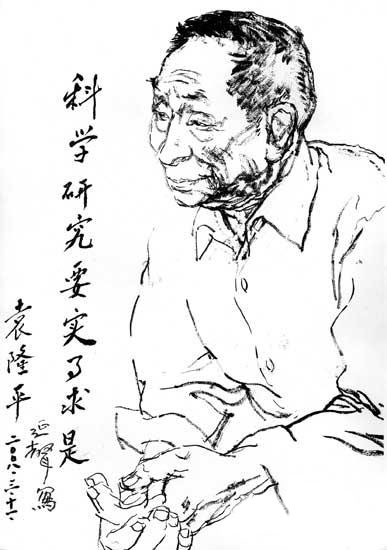 科学研究要实事求是
袁隆平
延聲寫
二〇〇八.三.